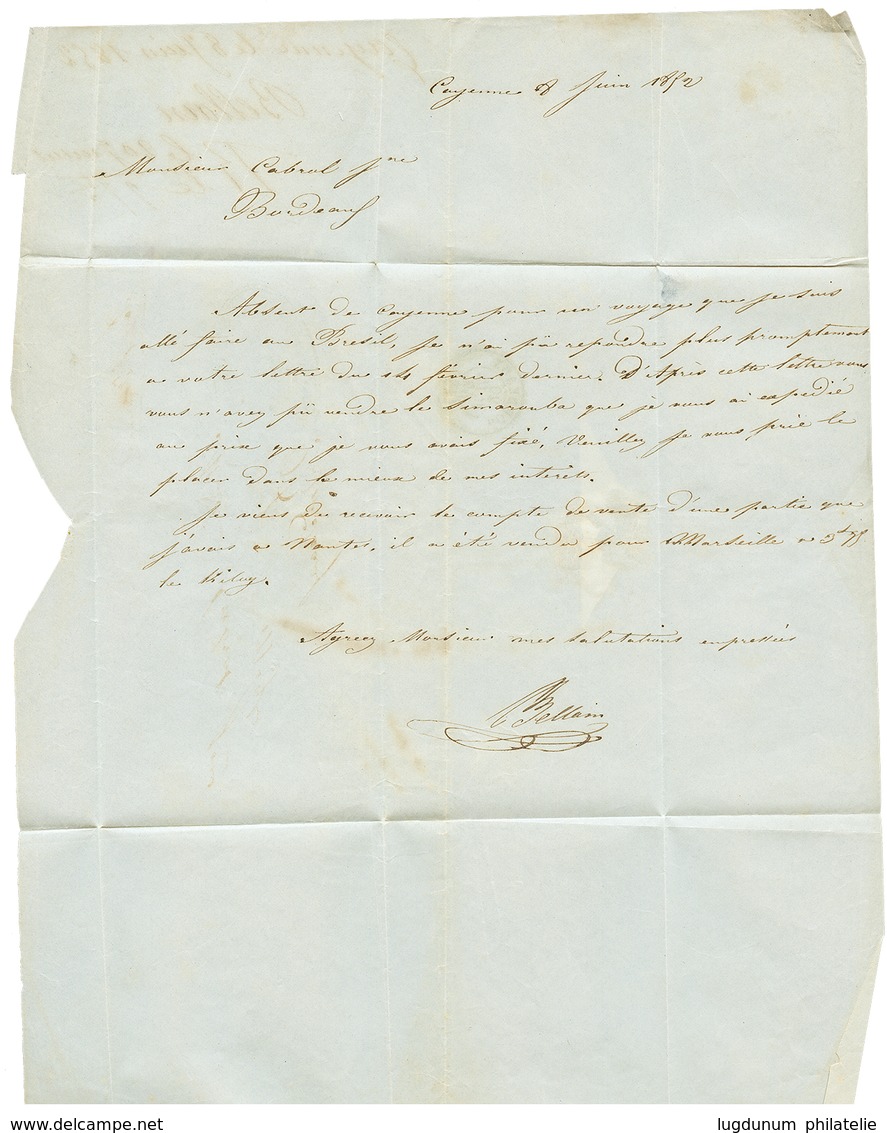 Cayenne 8 Juin 1852
Monsieur Cabrol Jne
Bordeaux
Absent de Cayenne pour un voyage que je suis
allé faire au Bresil, je n'ai pû repondre plus promptement
a votre lettre du 14 février dernier. D'Après cette lettre vous
vous n'avez pû vendre le Simarouba que je vous ai expedié
au prix que je vous avais fixé, Veuillez je vous prie le
placer dans le mieux de mes interets.
Je viens de recevoir le compte de vente d'une partie que
j'avais a Nantes, il a été vendu pour Marseille a
le Kilog.
Agreez Monsieur mes salutations empressées
Bellain
delcampe.net
lugdunum philatelie